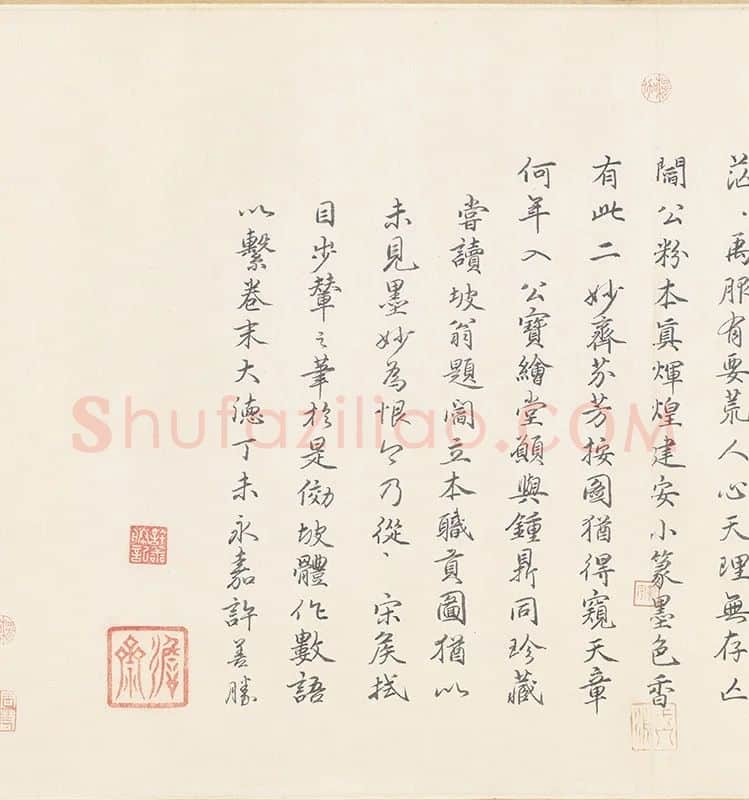 茫、禹服有要荒人心天理無存亡
閻公粉本真輝煌建安小篆墨色香
有此二妙齊芬芳按圖猶得窺天章
何年入公寶繪堂願與鍾鼎同珍藏
嘗讀坡翁題閻立本職貢圖猶以
未見墨妙為恨今乃從、宋侯拭
目步輦之筆於是傚坡體作數語
以繫卷末大德丁未永嘉許善勝
Shufaziliao.COM